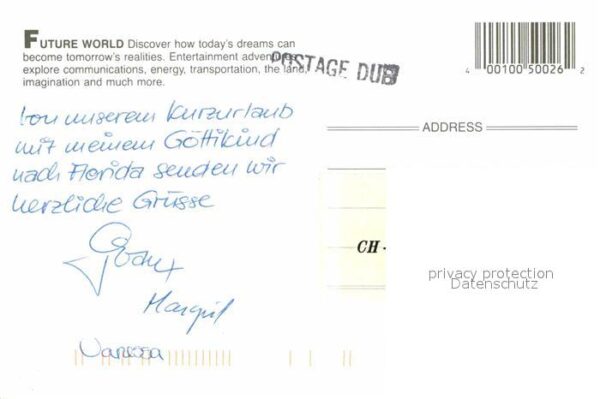 FUTURE WORLD Discover how today's dreams can
become tomorrow's realities. Entertainment adventures
explore communications, energy, transportation, the land,
imagination and much more.
POSTAGE DUE
4 00100 50026 2
ADDRESS
von unserem Kurzurlaub
mit meinem Göttikind
nach Florida senden wir
herzliche Grüsse
CH-
privacy protection
Datenschutz
Margrit
Vanessa